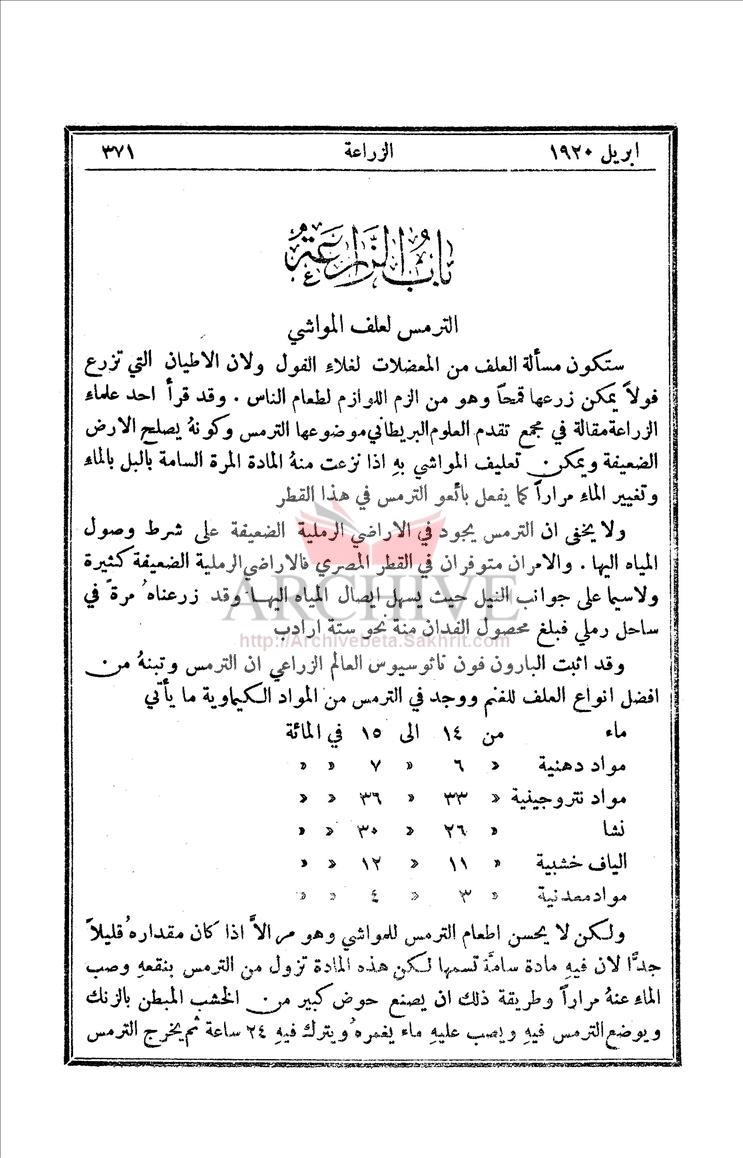 ابريل ١٩٢٠ الزراعة ٣٧١
باب الزراعة
الترمس لعلف المواشي
ستكون مسألة العلف من المعضلات لغلاء الفول ولان الاطيان التي تزرع
فولاً يمكن زرعها قمحاً وهو من الزم اللوازم لطعام الناس . وقد قرأ احد علماء
الزراعة مقالة في مجمع تقدم العلوم البريطاني موضوعها الترمس وكونهُ يصلح الارض
الضعيفة ويمكن تعليف المواشي بهِ اذا نزعت منهُ المادة المرة السامة بالبل بالماء
وتغيير الماء مراراً كما يفعل بائعو الترمس في هذا القطر
ولا يخفى ان الترمس يجود في الاراضي الرملية الضعيفة على شرط وصول
المياه اليها . والامران متوفران في القطر المصري فالاراضي الرملية الضعيفة كثيرة
ولاسيما على جوانب النيل حيث يسهل ايصال المياه اليها وقد زرعناهُ مرة في
ساحل رملي فبلغ محصول الفدان منهُ نحو ستة ارادب
ARCHIVE
http://Archivebeta.Sakhrit.com
وقد اثبت البارون فون ناثوسيوس العالم الزراعي ان الترمس وتبنهُ من
افضل انواع العلف للغنم ووجد في الترمس من المواد الكيماوية ما يأتي
ماء من ١٤ الى ١٥ في المائة
مواد دهنية » ٦ » ٧ » »
مواد نتروجينية » ٣٣ » ٣٦ » »
نشا » ٢٦ » ٣٠ » »
الياف خشبية » ١١ » ١٢ » »
مواد معدنية » ٣ » ٤ » »
ولكن لا يحسن اطعام الترمس للمواشي وهو مر الاَّ اذا كان مقدارهُ قليلاً
جدًّا لان فيهِ مادة سامَّة تسمها لكن هذه المادة تزول من الترمس بنقعهِ وصب
الماء عنهُ مراراً وطريقة ذلك ان يصنع حوض كبير من الخشب المبطن بالزنك
ويوضع الترمس فيهِ ويصب عليهِ ماء يغمرهُ ويترك فيهِ ٢٤ ساعة ثم يخرج الترمس